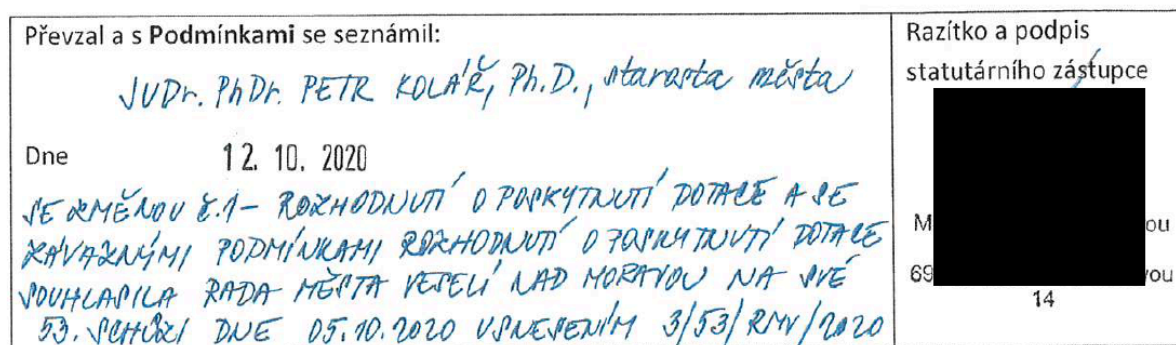 Převzal a s Podmínkami se seznámil:
JUDr. PhDr. PETR KOLÁŘ, Ph.D., starosta města
Dne 12. 10. 2020
SE ZMĚNOU č.1 – ROZHODNUTÍ O POSKYTNUTÍ DOTACE A SE
ZÁVAZNÝMI PODMÍNKAMI ROZHODNUTÍ O POSKYTNUTÍ DOTACE
SOUHLASILA RADA MĚSTA VESELÍ NAD MORAVOU NA SVÉ
53. SCHŮZI DNE 05.10.2020 USNESENÍM 3/53/RMV/2020
Razítko a podpis
statutárního zástupce
M ou
69 vou
14